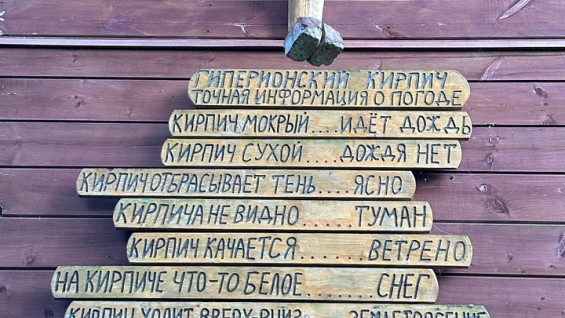 ГИПЕРИОНСКИЙ КИРПИЧ
ТОЧНАЯ ИНФОРМАЦИЯ О ПОГОДЕ
КИРПИЧ МОКРЫЙ.....ИДЁТ ДОЖДЬ
КИРПИЧ СУХОЙ......ДОЖДЯ НЕТ
КИРПИЧ ОТБРАСЫВАЕТ ТЕНЬ.....ЯСНО
КИРПИЧА НЕ ВИДНО.......ТУМАН
КИРПИЧ КАЧАЕТСЯ........ВЕТРЕНО
НА КИРПИЧЕ ЧТО-ТО БЕЛОЕ........СНЕГ
КИРПИЧ ХОДИТ ВВЕРХ-ВНИЗ....ЗЕМЛЕТРЯСЕНИЕ